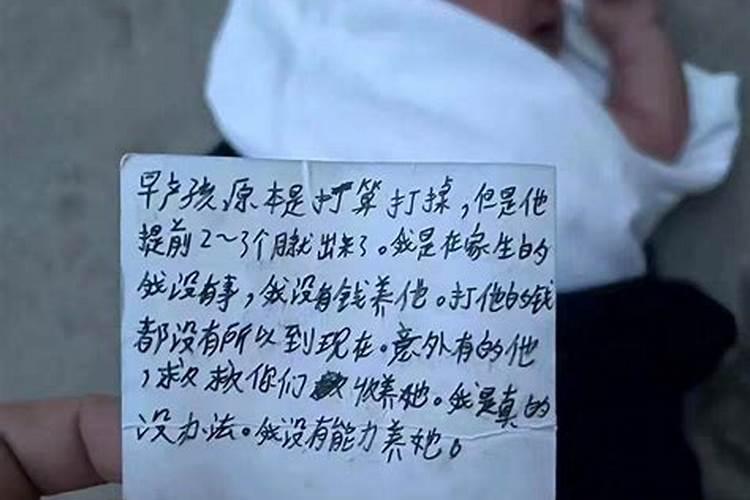 早产孩原本是打算打掉,但是他
提前2~3个月就出来了。我是在家生的
我没有事,我没有钱养他。打他的钱
都没有所以到现在。意外有的他
,求求你们收养她。我是真的
没办法。我没有能力养她。